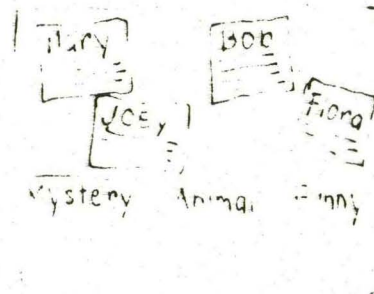 Mary Bob
Joey Flora
Mystery Animal Funny